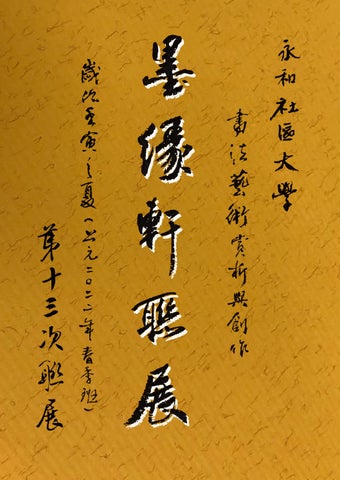 永和社區大學
書法藝術賞析與創作
墨緣軒聯展
歲次壬寅之夏(公元二〇二二年春季班)
第十三次聯展